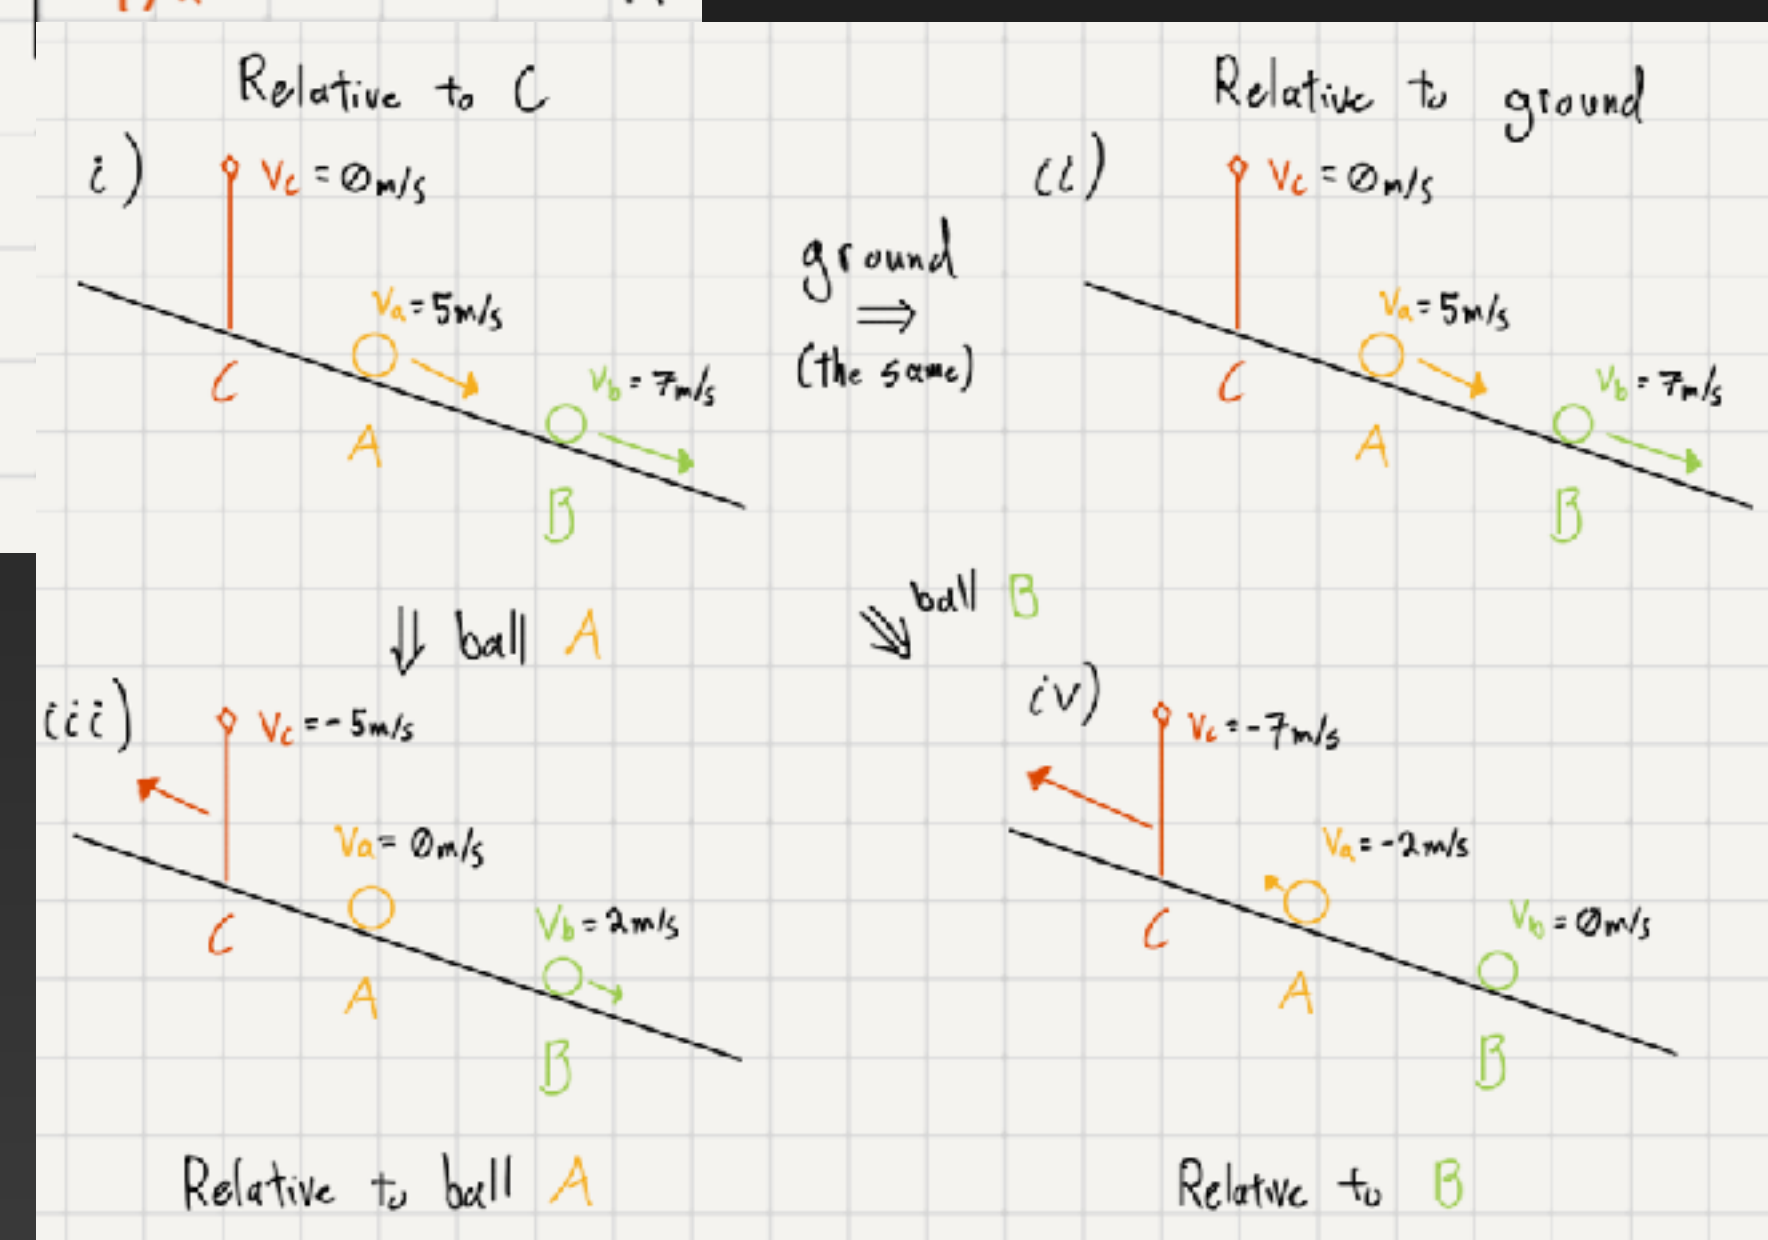 Relative to C
i)
Vc = 0m/s
Va = 5m/s
Vb = 7m/s
C
A
B
ground
⇒
(the same)
Relative to ground
ii)
Vc = 0m/s
Va = 5m/s
Vb = 7m/s
C
A
B
⇓ ball A
ball B
iii)
Vc = -5m/s
Va = 0m/s
Vb = 2m/s
C
A
B
Relative to ball A
iv)
Vc = -7m/s
Va = -2m/s
Vb = 0m/s
C
A
B
Relative to B